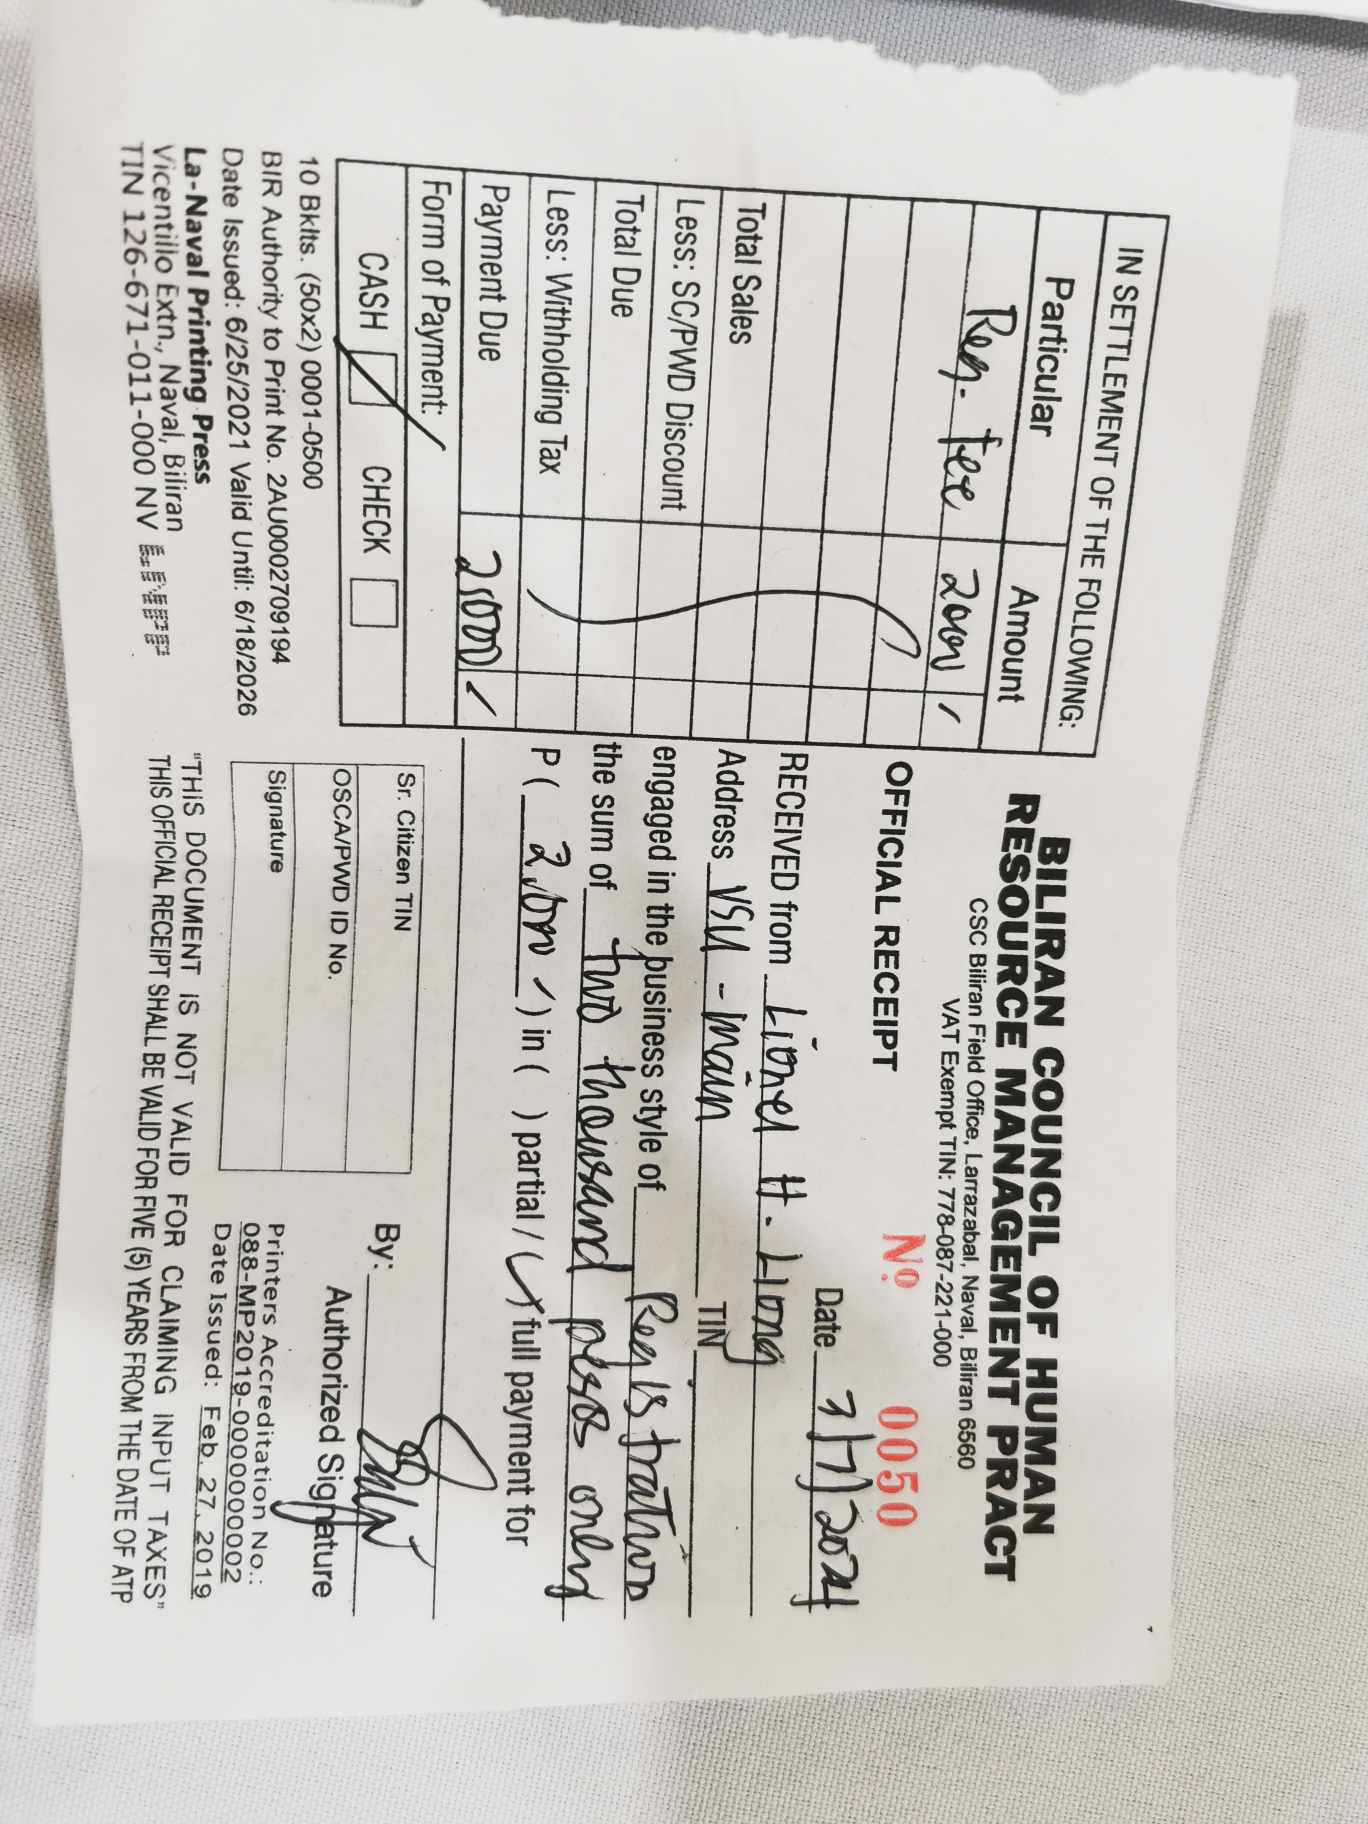 IN SETTLEMENT OF THE FOLLOWING:
Particular Amount
Reg. Fee 2000 /
Total Sales
Less: SC/PWD Discount
Total Due
Less: Withholding Tax
Payment Due 2,000 /
Form of Payment:
CASH CHECK
10 Bklts. (50x2) 0001-0500
BIR Authority to Print No. 2AU0002709194
Date Issued: 6/25/2021 Valid Until: 6/18/2026
La-Naval Printing Press
Vicentillo Extn., Naval, Biliran
TIN 126-671-011-000 NV LNPP
BILIRAN COUNCIL OF HUMAN
RESOURCE MANAGEMENT PRACT
CSC Biliran Field Office, Larrazabal, Naval, Biliran 6560
VAT Exempt TIN: 778-087-221-000
OFFICIAL RECEIPT Nº 0050
Date 7/17/2024
RECEIVED from Lionel H. Liong
Address VSU - Main TIN
engaged in the business style of Registration
the sum of two thousand pesos only
P ( 2,000 ✓ ) in ( ) partial / ( ✓ ) full payment for
Sr. Citizen TIN
OSCA/PWD ID No.
Signature
By:
Authorized Signature
Printers Accreditation No.:
088-MP2019-0000000002
Date Issued: Feb. 27, 2019
"THIS DOCUMENT IS NOT VALID FOR CLAIMING INPUT TAXES"
THIS OFFICIAL RECEIPT SHALL BE VALID FOR FIVE (5) YEARS FROM THE DATE OF ATP